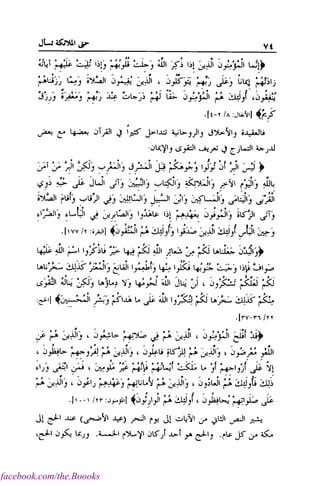 ٧٤ حتى الملائكة تسأل
﴿إنما المؤمنون الذين إذا ذكر الله وجلت قلوبهم وإذا تليت عليهم آياته
زادتهم إيمانا وعلى ربهم يتوكلون ، الذين يقيمون الصلاة ومما رزقناهم
ينفقون، أولئك هم المؤمنون حقا لهم درجات عند ربهم ومغفرة ورزق
كريم﴾ [الأنفال: ٨/ ٢-٤].
فالعقيدة والأخلاق والروحانية تتداخل كثيراً في القرآن بعضها مع بعض
لدرجة التمازج في تعريف التقوى والإيمان:
﴿ليس البر أن تولوا وجوهكم قبل المشرق والمغرب ولكن البر من آمن
بالله واليوم الآخر والملائكة والكتاب والنبيين وآتى المال على حبه ذوي
القربى واليتامى والمساكين وابن السبيل والسائلين وفي الرقاب وأقام الصلاة
وآتى الزكاة والموفون بعهدهم إذا عاهدوا والصابرين في البأساء والضراء
وحين البأس أولئك الذين صدقوا وأولئك هم المتقون﴾ [البقرة: ٢/ ١٧٧].
﴿والبدن جعلناها لكم من شعائر الله لكم فيها خير فاذكروا اسم الله عليها
صواف فإذا وجبت جنوبها فكلوا منها وأطعموا القانع والمعتر كذلك سخرناها
لكم لعلكم تشكرون ، لن ينال الله لحومها ولا دماؤها ولكن يناله التقوى
منكم كذلك سخرها لكم لتكبروا الله على ما هداكم وبشر المحسنين﴾ [الحج:
٢٢/ ٣٦-٣٧].
﴿قد أفلح المؤمنون ، الذين هم في صلاتهم خاشعون ، والذين هم عن
اللغو معرضون ، والذين هم للزكاة فاعلون ، والذين هم لفروجهم حافظون ،
إلا على أزواجهم أو ما ملكت أيمانهم فإنهم غير ملومين ، فمن ابتغى وراء
ذلك فأولئك هم العادون ، والذين هم لأماناتهم وعهدهم راعون ، والذين هم
على صلواتهم يحافظون ، أولئك هم الوارثون﴾ [المؤمنون: ٢٣/ ١-١٠].
يشير النص الثاني من الآيات إلى يوم النحر (عيد الأضحى) عند الحج إلى
مكة من كل عام. والحج هو أحد أركان الإسلام الخمسة. وربما يكون الحج،
facebook.com/the.Boooks